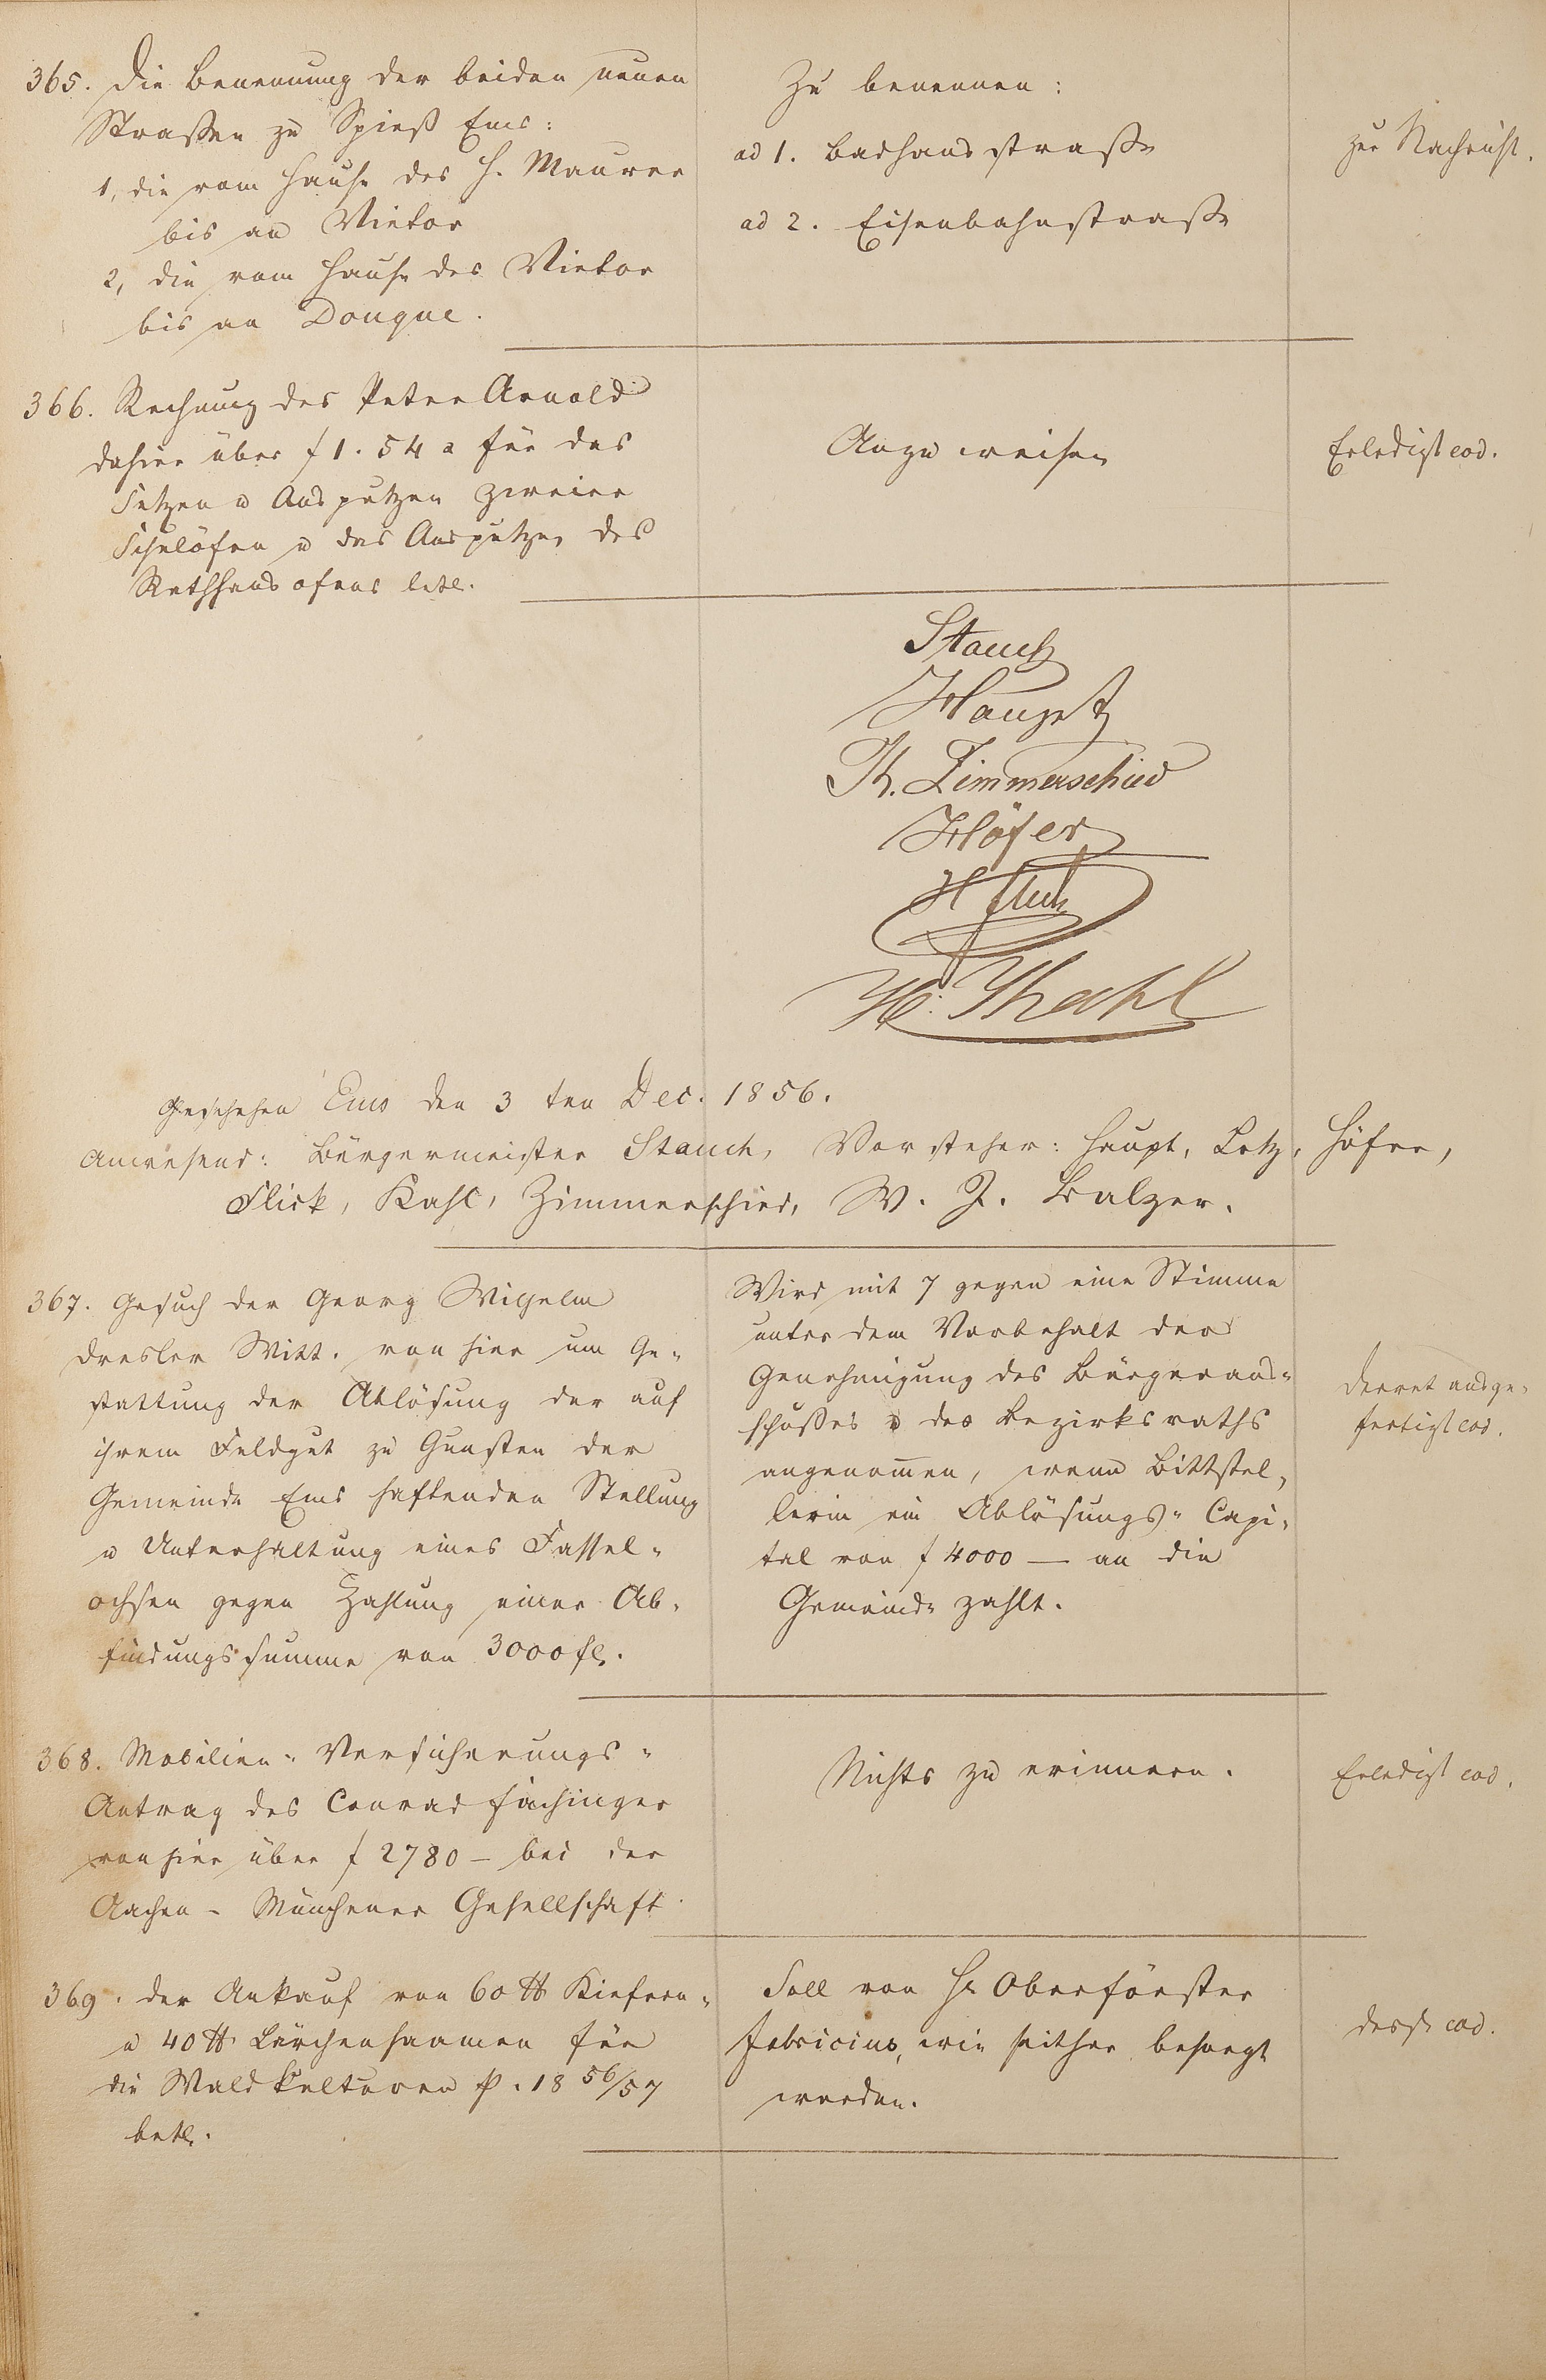 365. Die Benennung der beiden neuen
Straßen zu Spieß Ems:
1, die vom Hause des H. Maurer
bis an Vietor
2, die vom Hause des Vietor
bis an Douque.
Zu benennen:
ad 1. Badhausstraße
ad 2. Eisenbahnstraße
zur Nachricht.
366. Rechnung des Peter Arnold
dahier über f 1. 54 x für das
Setzen u Ausputzen zweier
Schulöfen u das Ausputzen des
Rathhausofens betr.
Anzuweisen
Erledigt eod.
Stauch
Haupt
Ph. Zimmerschied
Höfer
H Flick
H. Kahl
Geschehen Ems den 3ten Dec. 1856.
Anwesend: Bürgermeister Stauch, Vorsteher: Haupt, Lotz, Höfer,
Flick, Kahl, Zimmerschied, W. J. Balzer.
367. Gesuch der Georg Wilhelm
Dresler Witt. von hier um Ge-
stattung der Ablösung der auf
ihrem Feldgut zu Gunsten der
Gemeinde Ems haftenden Stellung
u Unterhaltung eines Fassel-
ochsen gegen Zahlung einer Ab-
findungssumme von 3000 fl.
Wird mit 7 gegen eine Stimme
unter dem Vorbehalt der
Genehmigung des Bürgeraus-
schußes u des Bezirksraths
angenom̄en, wenn Bittstel-
lerin ein Ablösungs-Capi-
tal von f 4000 — an die
Gemeinde zahlt.
Decret ausge-
fertigt eod.
368. Mobilien-Versicherungs-
Antrag des Conrad Fachinger
von hier über f 2780 – bei der
Aachen-Münchener Gesellschaft
Nichts zu erinnern.
Erledigt eod.
369. Der Ankauf von 60 ℔ Kiefern-
u 40 ℔ Lärchensaamen für
die Waldkulturen p. 18 56/57
betr.
Soll von Hr. Oberförster
Fabricius, wie seither besorgt
werden.
eod.